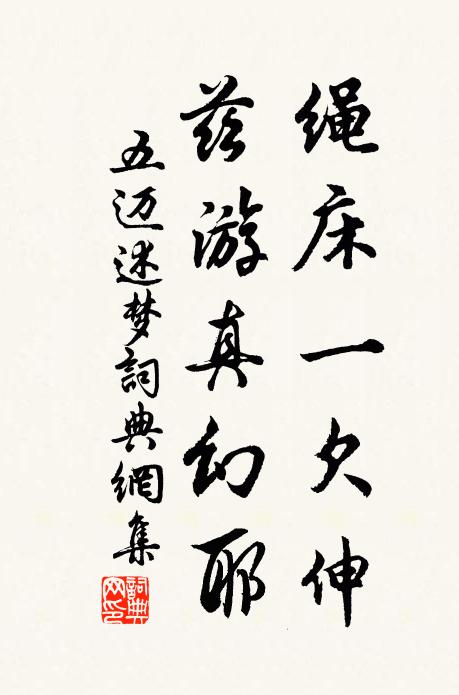 绳床一欠伸
兹游真幻耶
五迈述梦詞典網集
詞典网印